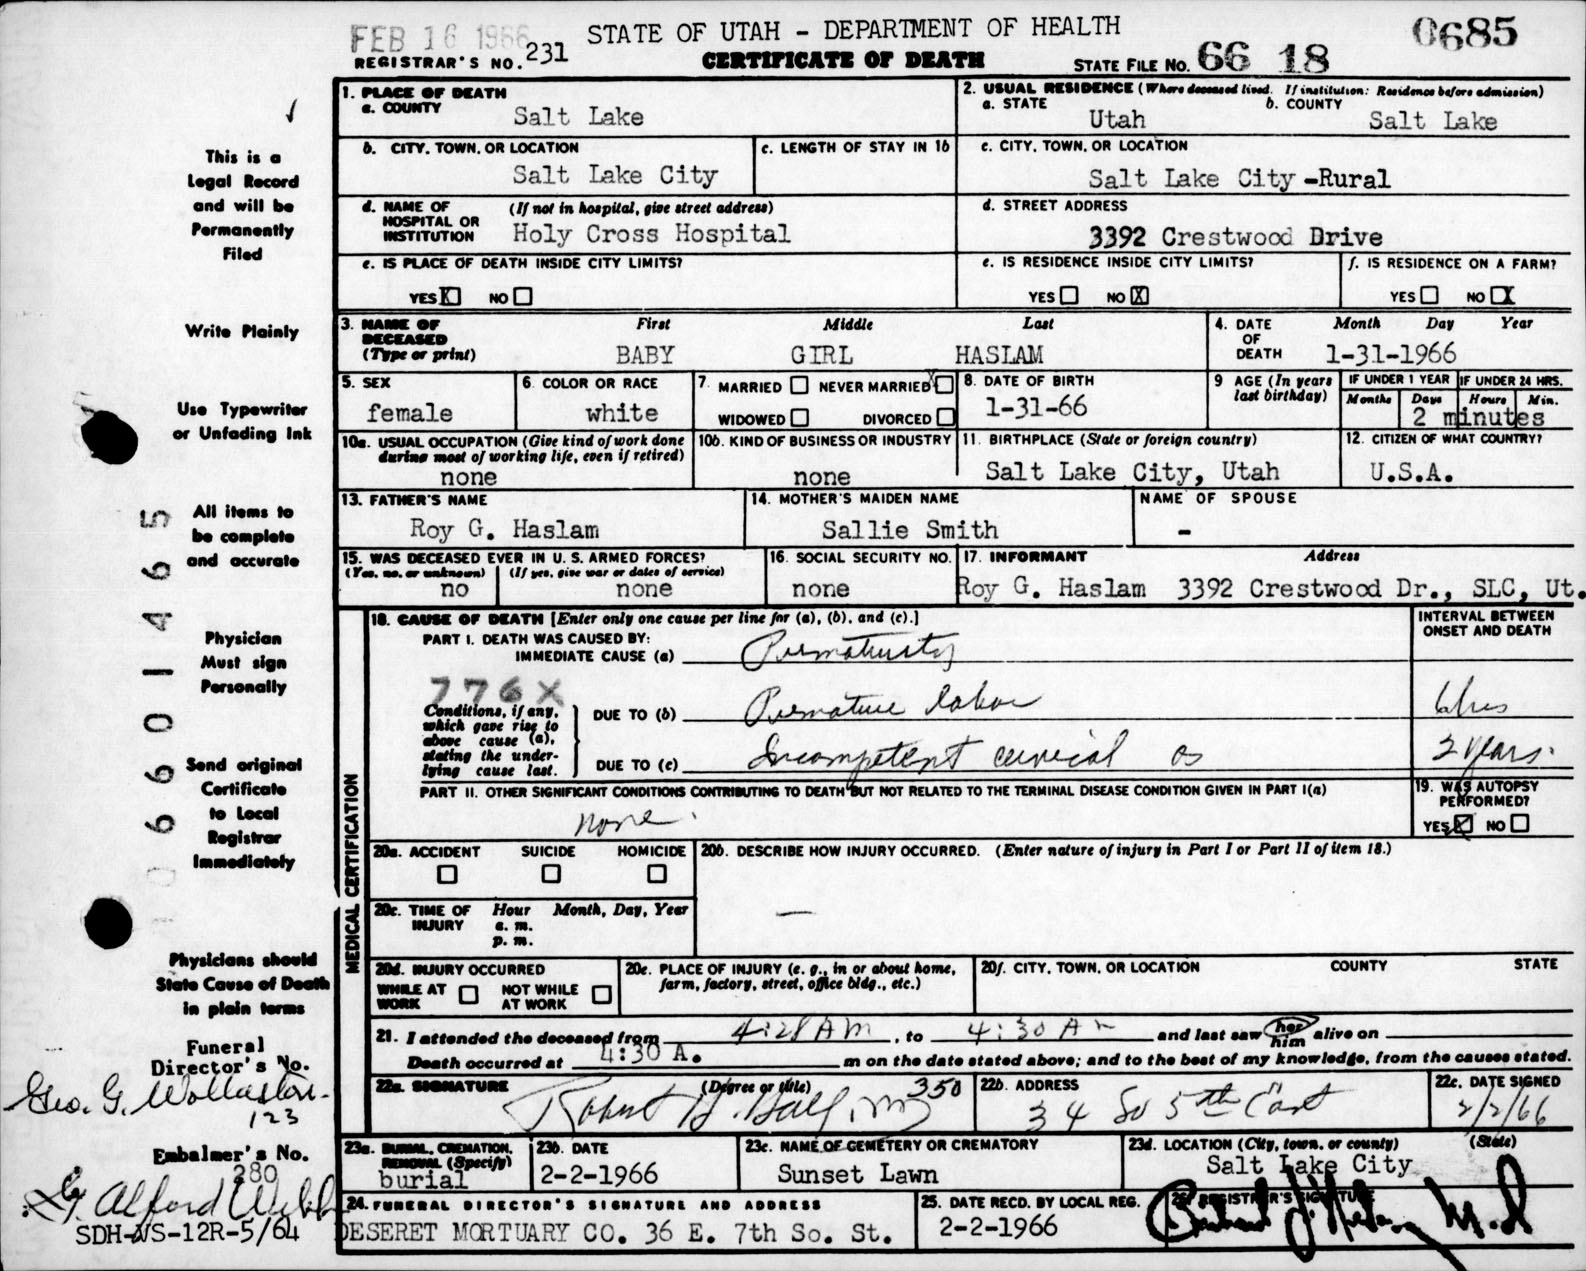 FEB 16 1966
STATE OF UTAH - DEPARTMENT OF HEALTH
0685
REGISTRAR'S NO. 231
CERTIFICATE OF DEATH
STATE FILE NO. 66 18
This is a
Legal Record
and will be
Permanently
Filed
Write Plainly
Use Typewriter
or Unfading Ink
All items to
be complete
and accurate
Physician
Must sign
Personally
Send original
Certificate
to Local
Registrar
Immediately
Physicians should
State Cause of Death
in plain terms
Funeral
Director's No.
Geo. G. Wollaston
123
Embalmer's No.
280
Alford Webb
SDH-VS-12R-5/64
0660146 5
1. PLACE OF DEATH
a. COUNTY
Salt Lake
2. USUAL RESIDENCE (Where deceased lived. If institution: Residence before admission)
a. STATE b. COUNTY
Utah Salt Lake
b. CITY, TOWN, OR LOCATION
Salt Lake City
c. LENGTH OF STAY IN 1b
c. CITY, TOWN, OR LOCATION
Salt Lake City -Rural
d. NAME OF (If not in hospital, give street address)
HOSPITAL OR
INSTITUTION Holy Cross Hospital
d. STREET ADDRESS
3392 Crestwood Drive
e. IS PLACE OF DEATH INSIDE CITY LIMITS?
YES X NO
e. IS RESIDENCE INSIDE CITY LIMITS?
YES NO X
f. IS RESIDENCE ON A FARM?
YES NO X
3. NAME OF First Middle Last
DECEASED
(Type or print) BABY GIRL HASLAM
4. DATE Month Day Year
OF
DEATH 1-31-1966
5. SEX
female
6. COLOR OR RACE
white
7. MARRIED NEVER MARRIED X
WIDOWED DIVORCED
8. DATE OF BIRTH
1-31-66
9 AGE (In years
last birthday)
IF UNDER 1 YEAR IF UNDER 24 HRS.
Months Days Hours Min.
2 minutes
10a. USUAL OCCUPATION (Give kind of work done
during most of working life, even if retired)
none
10b. KIND OF BUSINESS OR INDUSTRY
none
11. BIRTHPLACE (State or foreign country)
Salt Lake City, Utah
12. CITIZEN OF WHAT COUNTRY?
U.S.A.
13. FATHER'S NAME
Roy G. Haslam
14. MOTHER'S MAIDEN NAME
Sallie Smith
NAME OF SPOUSE
-
15. WAS DECEASED EVER IN U. S. ARMED FORCES?
(Yes, no, or unknown) (If yes, give war or dates of service)
no none
16. SOCIAL SECURITY NO.
none
17. INFORMANT Address
Roy G. Haslam 3392 Crestwood Dr., SLC, Ut.
MEDICAL CERTIFICATION
18. CAUSE OF DEATH [Enter only one cause per line for (a), (b), and (c).]
INTERVAL BETWEEN
ONSET AND DEATH
PART I. DEATH WAS CAUSED BY:
IMMEDIATE CAUSE (a) Prematurity
776X
Conditions, if any,
which gave rise to
above cause (a),
stating the under-
lying cause last.
DUE TO (b) Premature labor 6 hrs
DUE TO (c) Incompetent cervical os 2 years.
PART II. OTHER SIGNIFICANT CONDITIONS CONTRIBUTING TO DEATH BUT NOT RELATED TO THE TERMINAL DISEASE CONDITION GIVEN IN PART I(a)
none.
19. WAS AUTOPSY
PERFORMED?
YES X NO
20a. ACCIDENT SUICIDE HOMICIDE
20b. DESCRIBE HOW INJURY OCCURRED. (Enter nature of injury in Part I or Part II of item 18.)
—
20c. TIME OF Hour Month, Day, Year
INJURY a. m.
p. m.
20d. INJURY OCCURRED
WHILE AT NOT WHILE
WORK AT WORK
20e. PLACE OF INJURY (e. g., in or about home,
farm, factory, street, office bldg., etc.)
20f. CITY, TOWN, OR LOCATION COUNTY STATE
21. I attended the deceased from 4:28 AM, to 4:30 A and last saw her him alive on
Death occurred at 4:30 A. m on the date stated above; and to the best of my knowledge, from the causes stated.
22a. SIGNATURE (Degree or title) 350
Robert H. Hall MD
22b. ADDRESS
34 So 5th East
22c. DATE SIGNED
2/2/66
23a. BURIAL, CREMATION,
REMOVAL (Specify)
burial
23b. DATE
2-2-1966
23c. NAME OF CEMETERY OR CREMATORY
Sunset Lawn
23d. LOCATION (City, town, or county) (State)
Salt Lake City
24. FUNERAL DIRECTOR'S SIGNATURE AND ADDRESS
DESERET MORTUARY CO. 36 E. 7th So. St.
25. DATE RECD. BY LOCAL REG.
2-2-1966
26. REGISTRAR'S SIGNATURE
M.D